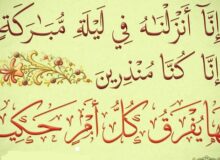 إِنَّآ أَنزَلْنَٰهُ فِي لَيْلَةٍ مُّبَٰرَكَةٍ
إِنَّا كُنَّا مُنذِرِينَ
فِيهَا يُفْرَقُ كُلُّ أَمْرٍ حَكِيمٍ